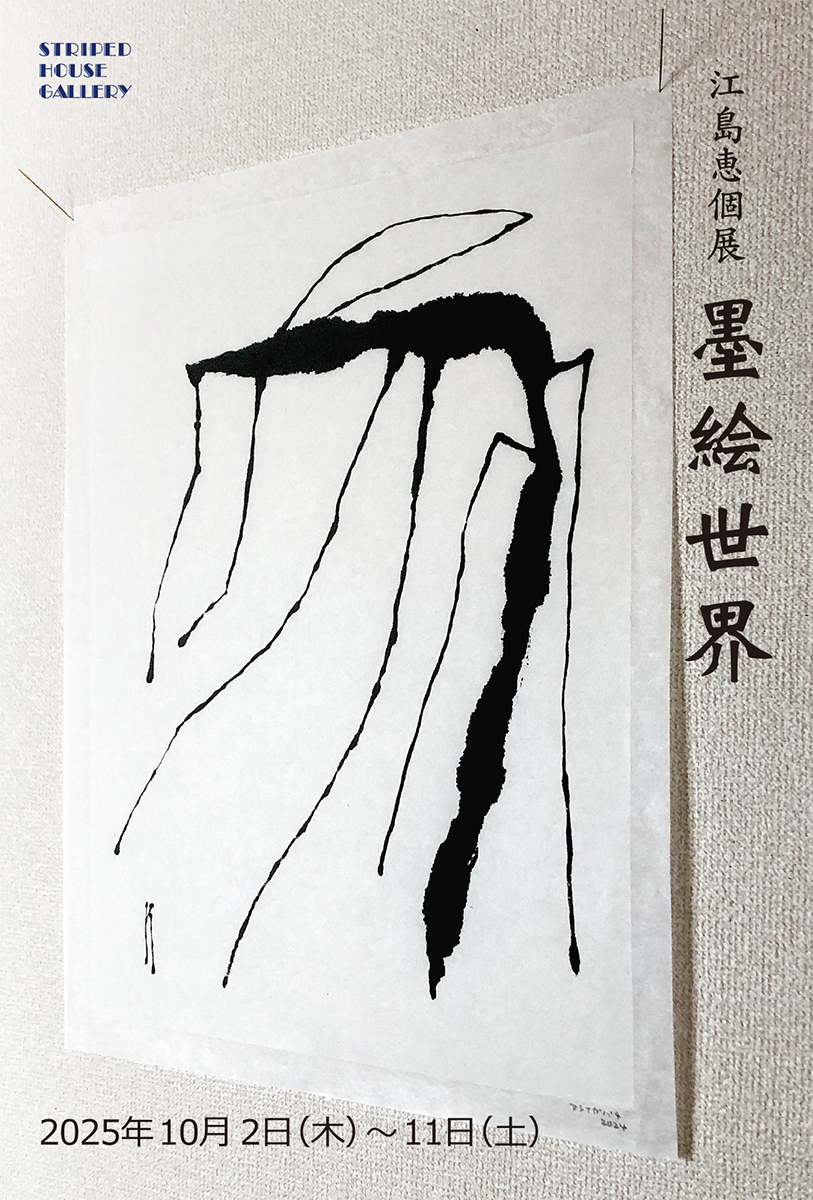 STRIPED
HOUSE
GALLERY
江島恵個展
墨絵世界
2025年10月2日（木）～11日（土）
2024